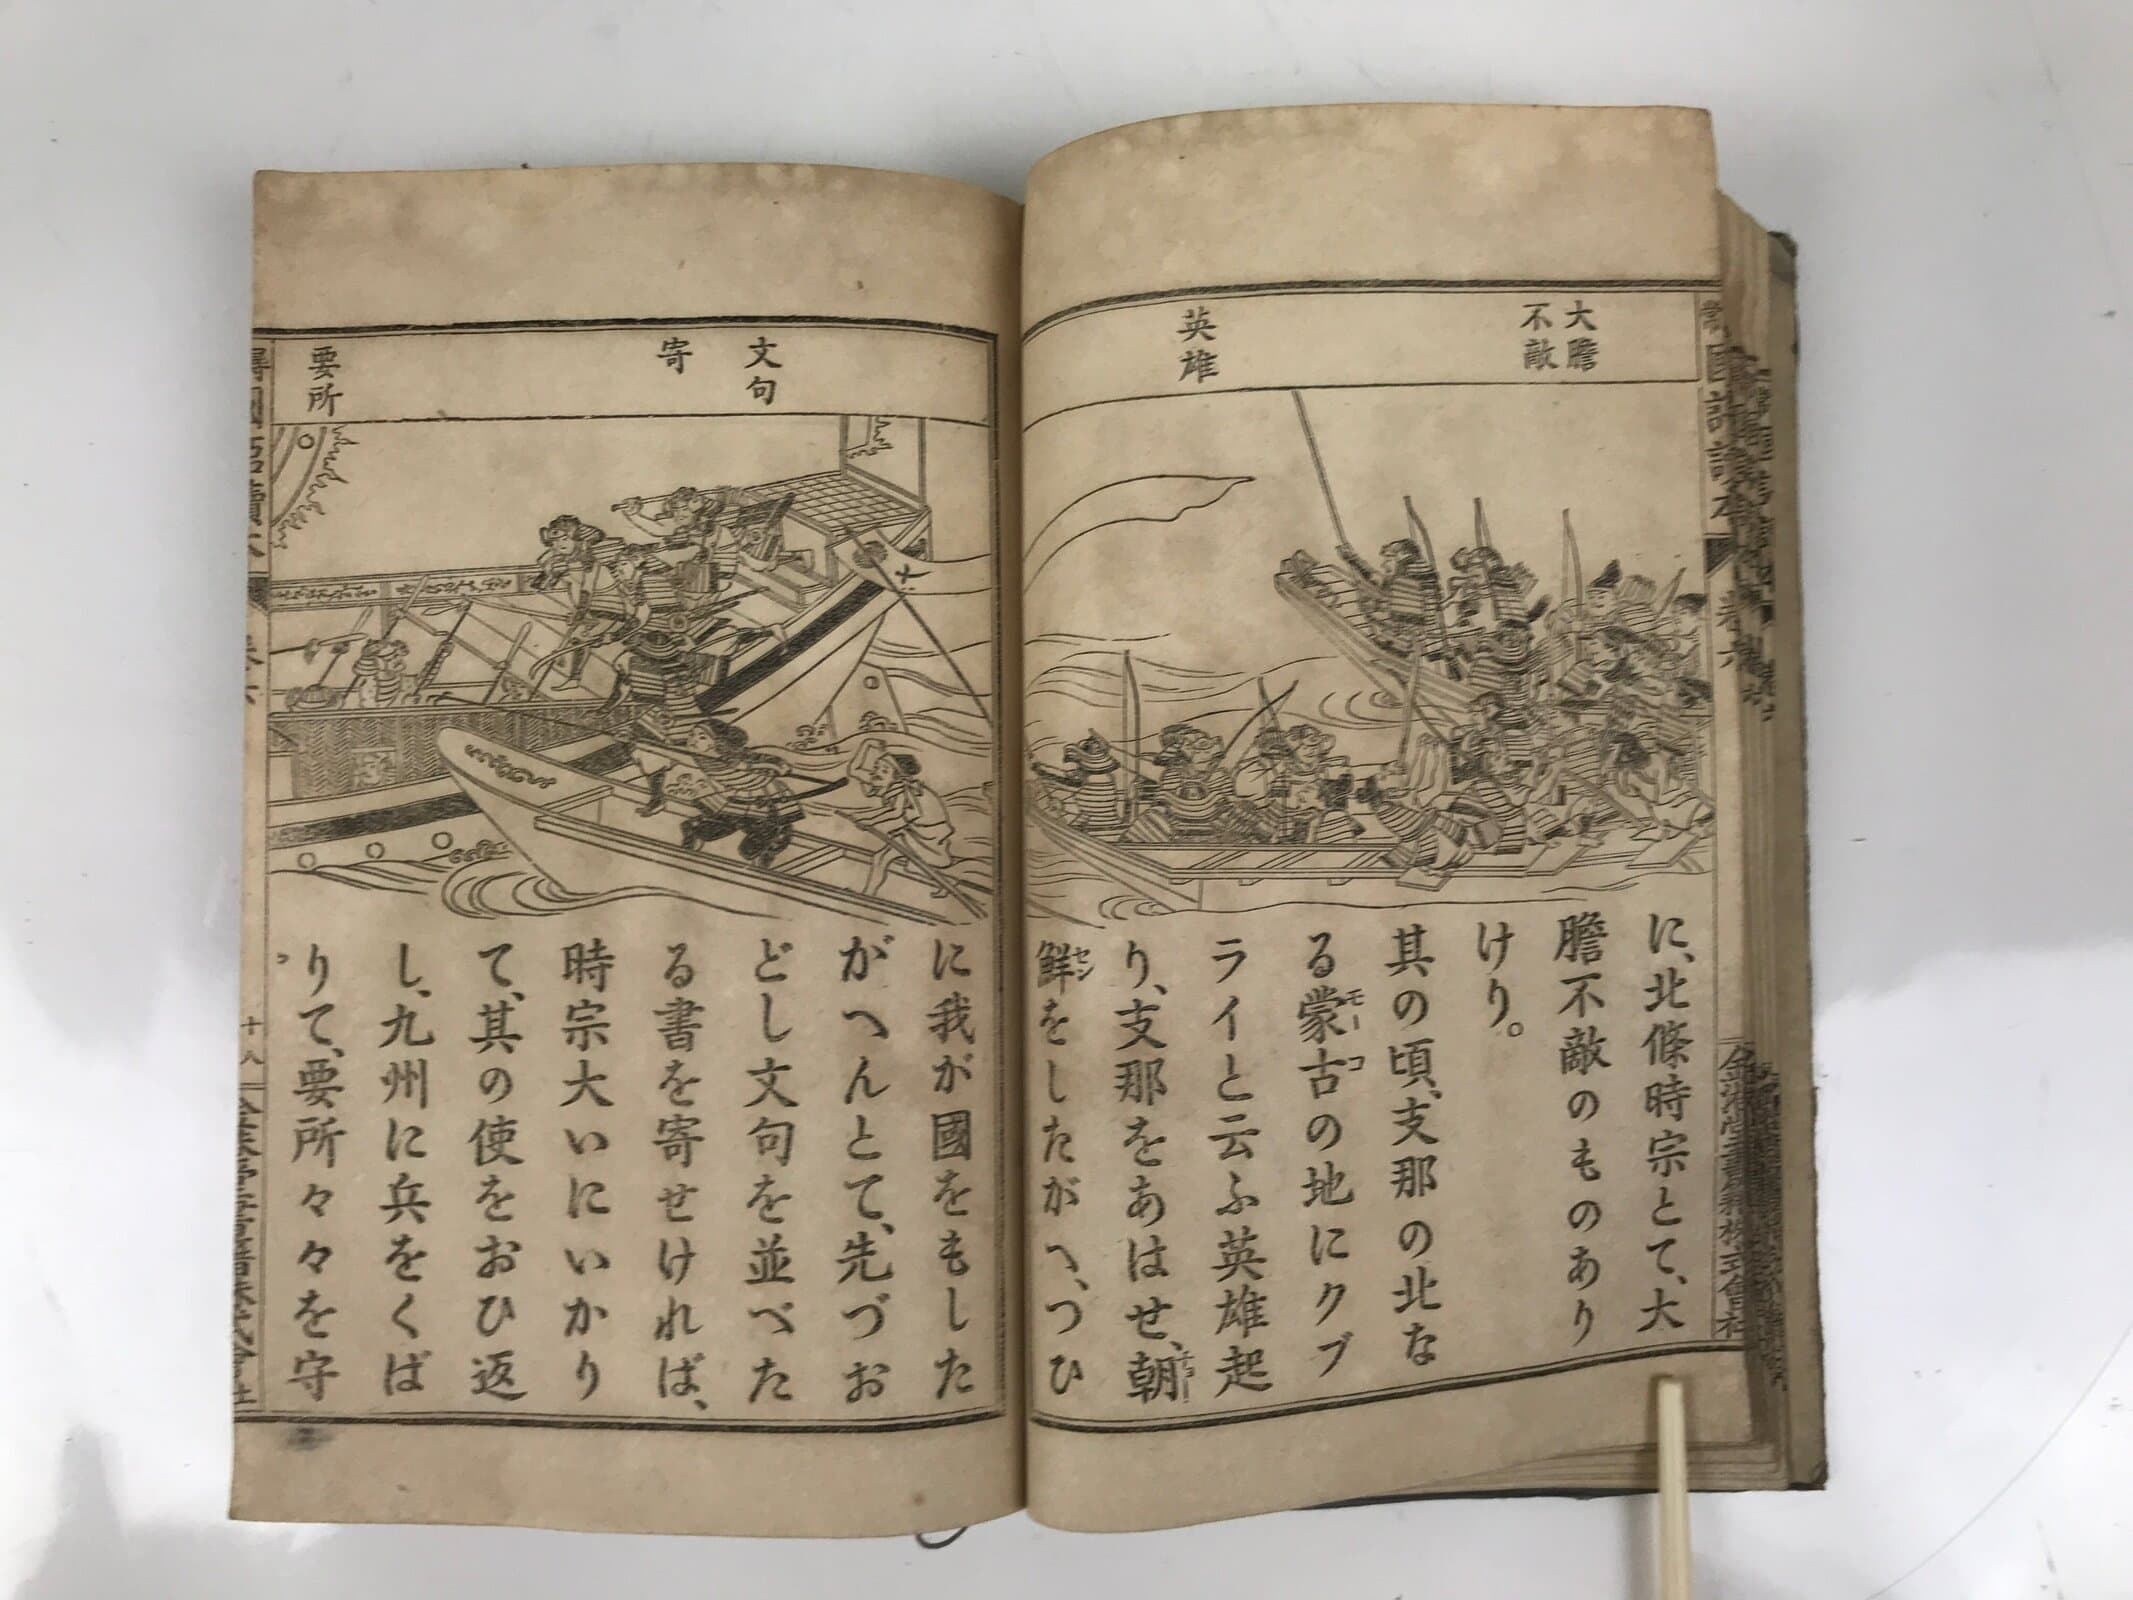 大膽
不敵
英雄
に、北條時宗とて、大
膽不敵のものあり
けり。
其の頃、支那の北な
る蒙古の地にクブ
モーコ
ライと云ふ英雄起
り、支那をあはせ、朝
チョー
鮮をしたがへ、つひ
セン
文句
寄
要所
に我が國をもした
がへんとて、先づお
どし文句を並べた
る書を寄せければ、
時宗大いにいかり
て、其の使をおひ返
し、九州に兵をくば
りて、要所々々を守
十八